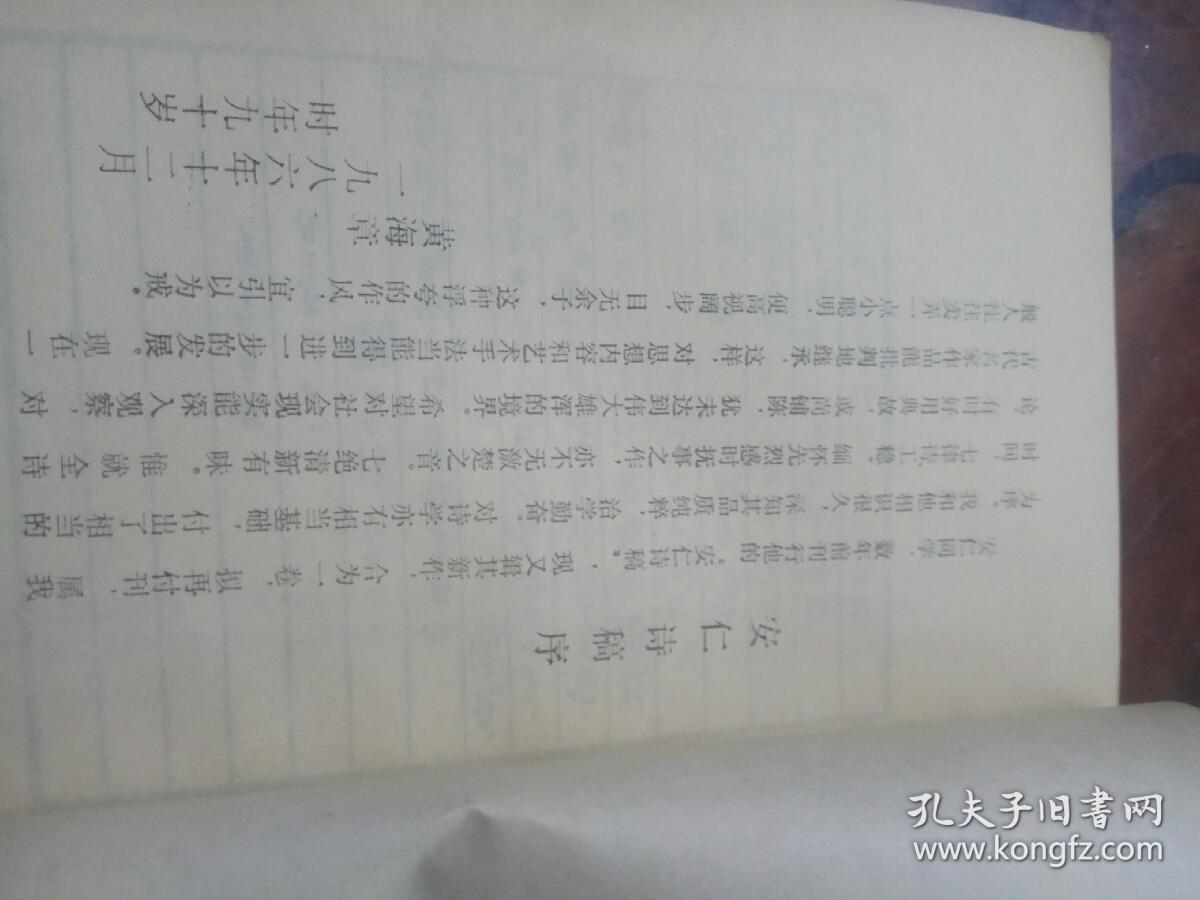 安仁诗稿序
安仁同学，数年前刊行他的“安仁诗稿”，现又辑其新作，合为一卷，拟再付刊，属我
为序。我和他相识很久，深知其品质纯粹，治学勤奋。对诗学亦有相当基础，付出了相当的
时间，七律诗工稳。缅怀先烈感时抚事之作，亦不无激楚之音。七绝清新有味。惟就全诗
论，有时好用典故，或尚铺陈，犹未达到伟大雄浑的境界。希望对社会现实能深入观察，对
古代名家作品能批判地继承，这样，对思想内容和艺术手法当能得到进一步的发展。现在一
般人往往卖弄一点小聪明，便高视阔步，目无余子，这种浮夸的作风，宜引以为戒。
黄海章
一九八六年十二月
时年九十岁
孔夫子旧书网
www.kongfz.com